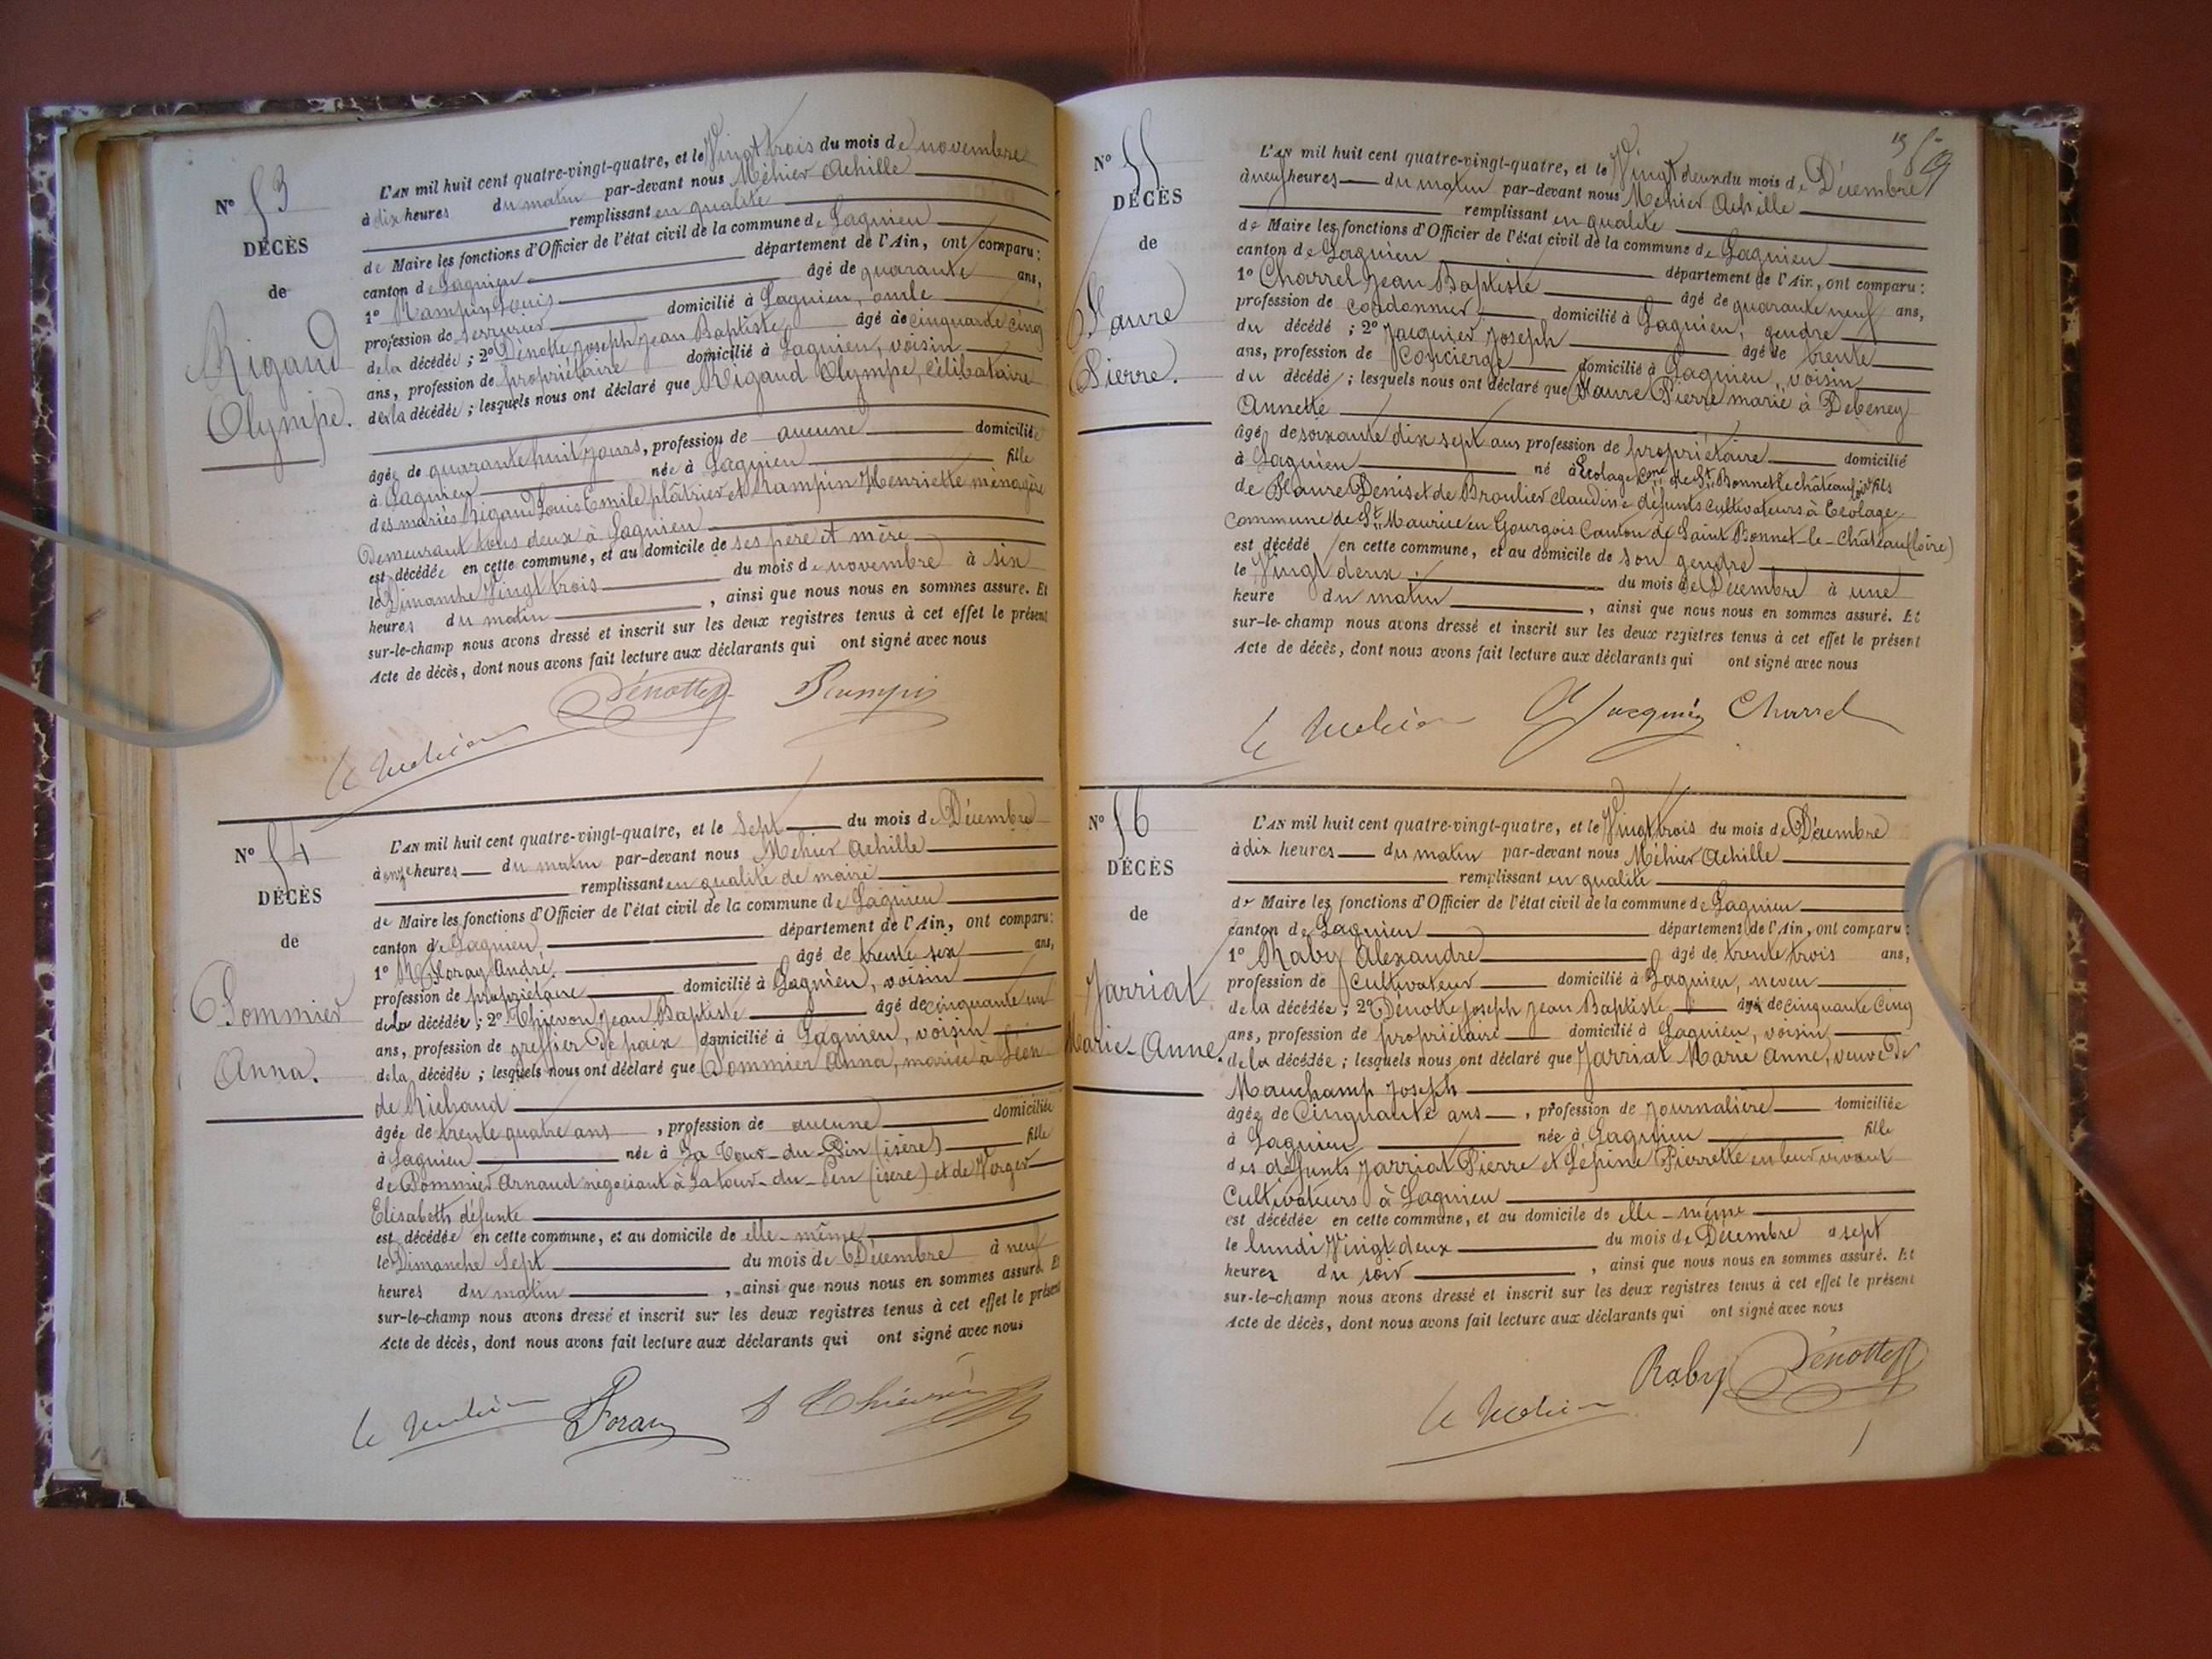 N° 53
DÉCÈS
de
Rigaud
Olympe.
L'AN mil huit cent quatre-vingt-quatre, et le Vingt trois du mois de novembre
à dix heures du matin par-devant nous Méhier Achille
remplissant en qualité
de Maire les fonctions d'Officier de l'état civil de la commune de Lagnieu
canton de Lagnieu département de l'Ain, ont comparu :
1° Rampin Louis âgé de quarante ans,
profession de serrurier domicilié à Lagnieu, oncle
de la décédée ; 2° Dénotte Joseph Jean Baptiste âgé de cinquante cinq
ans, profession de propriétaire domicilié à Lagnieu, voisin
de la décédée ; lesquels nous ont déclaré que Rigaud Olympe, Célibataire
âgée de quarante huit jours, profession de aucune domiciliée
à Lagnieu née à Lagnieu fille
des mariés Rigaud Louis Emile plâtrier et Rampin Henriette ménagère
Demeurant tous deux à Lagnieu
est décédée en cette commune, et au domicile de ses père et mère
le Dimanche Vingt trois du mois de novembre à six
heures du matin , ainsi que nous nous en sommes assuré. Et
sur-le-champ nous avons dressé et inscrit sur les deux registres tenus à cet effet le présent
Acte de décès, dont nous avons fait lecture aux déclarants qui ont signé avec nous
Dénotte Rampin
N° 54
DÉCÈS
de
Pommier
Anna.
L'AN mil huit cent quatre-vingt-quatre, et le Sept du mois de Décembre
à onze heures du matin par-devant nous Méhier Achille
remplissant en qualité de maire
de Maire les fonctions d'Officier de l'état civil de la commune de Lagnieu
canton de Lagnieu département de l'Ain, ont comparu :
1° Floray André âgé de trente six ans,
profession de propriétaire domicilié à Lagnieu, voisin
de la décédée ; 2° Thievon Jean Baptiste âgé de cinquante un
ans, profession de greffier de paix domicilié à Lagnieu, voisin
de la décédée ; lesquels nous ont déclaré que Pommier Anna, mariée à Léon
de Richaud
âgée de trente quatre ans , profession de aucune domiciliée
à Lagnieu née à La Tour-du-Pin (isère) fille
de Pommier Arnaud négociant à La tour-du-Pin (isère) et de Vorger
Elisabeth défunte
est décédée en cette commune, et au domicile de elle-même
le Dimanche Sept du mois de Décembre à neuf
heures du matin , ainsi que nous nous en sommes assuré. Et
sur-le-champ nous avons dressé et inscrit sur les deux registres tenus à cet effet le présent
Acte de décès, dont nous avons fait lecture aux déclarants qui ont signé avec nous
N° 55
DÉCÈS
de
Faure
Pierre.
59
L'AN mil huit cent quatre-vingt-quatre, et le Vingt deux du mois de Décembre
à neuf heures du matin par-devant nous Méhier Achille
remplissant en qualité
de Maire les fonctions d'Officier de l'état civil de la commune de Lagnieu
canton de Lagnieu département de l'Ain, ont comparu :
1° Charrel Jean Baptiste âgé de quarante neuf ans,
profession de cordonnier domicilié à Lagnieu, gendre
du décédé ; 2° Jacquier Joseph âgé de trente
ans, profession de Concierge domicilié à Lagnieu, voisin
du décédé ; lesquels nous ont déclaré que Faure Pierre marié à Debeney
Annette
âgé de soixante dix sept ans profession de propriétaire domicilié
à Lagnieu né à Ecolage Cne de St Bonnet le château fils
de Faure Denis et de Broulier claudine défunts cultivateurs à Ecolage
Commune de St Maurice en Gourgois Canton de Saint Bonnet-le-Château (loire)
est décédé en cette commune, et au domicile de son gendre
le Vingt deux du mois de Décembre à une
heure du matin , ainsi que nous nous en sommes assuré. Et
sur-le-champ nous avons dressé et inscrit sur les deux registres tenus à cet effet le présent
Acte de décès, dont nous avons fait lecture aux déclarants qui ont signé avec nous
Jacquier Charrel
N° 56
DÉCÈS
de
Jarriat
Marie-Anne.
L'AN mil huit cent quatre-vingt-quatre, et le Vingt trois du mois de Décembre
à dix heures du matin par-devant nous Méhier Achille
remplissant en qualité
de Maire les fonctions d'Officier de l'état civil de la commune de Lagnieu
canton de Lagnieu département de l'Ain, ont comparu :
1° Raby Alexandre âgé de trente trois ans,
profession de Cultivateur domicilié à Lagnieu, neveu
de la décédée ; 2° Dénotte Joseph Jean Baptiste âgé de cinquante cinq
ans, profession de propriétaire domicilié à Lagnieu, voisin
de la décédée ; lesquels nous ont déclaré que Jarriat Marie Anne, veuve de
Mauchamp Joseph
âgée de Cinquante ans , profession de journalière domiciliée
à Lagnieu née à Lagnieu fille
des défunts Jarriat Pierre et Lépine Pierrette en leur vivant
Cultivateurs à Lagnieu
est décédée en cette commune, et au domicile de elle-même
le lundi Vingt deux du mois de Décembre à sept
heures du soir , ainsi que nous nous en sommes assuré. Et
sur-le-champ nous avons dressé et inscrit sur les deux registres tenus à cet effet le présent
Acte de décès, dont nous avons fait lecture aux déclarants qui ont signé avec nous
Raby Dénotte